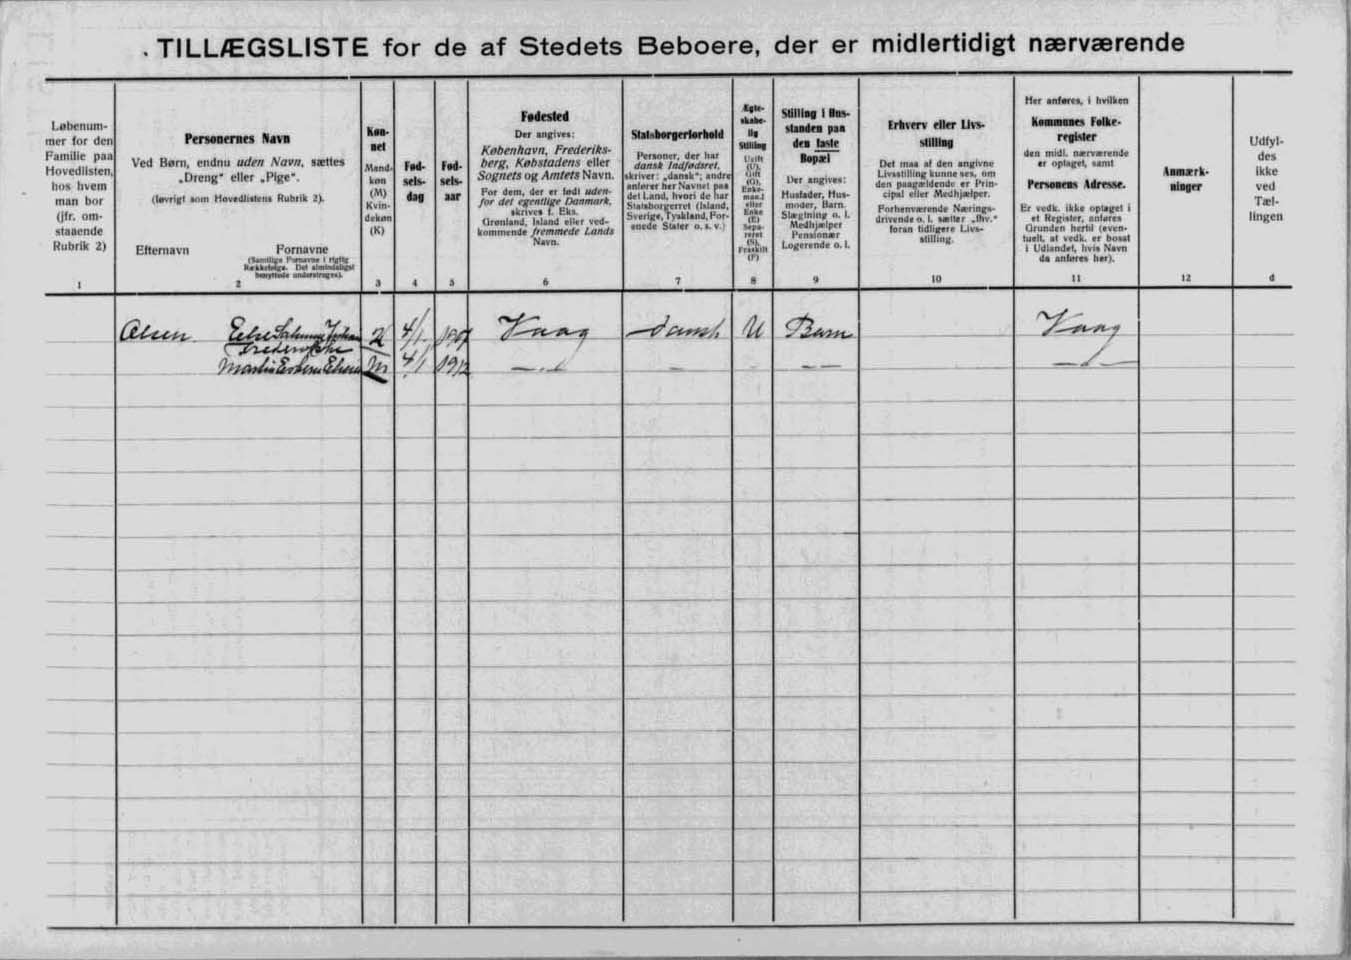 . TILLÆGSLISTE for de af Stedets Beboere, der er midlertidigt nærværende
Løbenum-
mer for den
Familie paa
Hovedlisten,
hos hvem
man bor
(jfr. om-
staaende
Rubrik 2)
1
Personernes Navn
Ved Børn, endnu uden Navn, sættes
„Dreng“ eller „Pige“.
(Iøvrigt som Hovedlistens Rubrik 2).
Efternavn
Fornavne
(Samtlige Fornavne i rigtig
Rækkefølge. Det almindeligst
benyttede understreges).
2
Køn-
net
Mand-
køn
(M)
Kvin-
dekøn
(K)
3
Fød-
sels-
dag
4
Fød-
sels-
aar
5
Fødested
Der angives:
København, Frederiks-
berg, Købstadens eller
Sognets og Amtets Navn.
For dem, der er født uden-
for det egentlige Danmark,
skrives f. Eks.
Grønland, Island eller ved-
kommende fremmede Lands
Navn.
6
Statsborgerforhold
Personer, der har
dansk Indfødsret,
skriver: „dansk“; andre
anfører her Navnet paa
det Land, hvori de har
Statsborgerret (Island,
Sverige, Tyskland, For-
enede Stater o. s. v.)
7
Ægte-
skabe-
lig
Stilling
Ugift
(U),
Gift
(G),
Enke-
mand
eller
Enke
(E)
Sepa-
reret
(S),
Fraskilt
(F)
8
Stilling i Hus-
standen paa
den faste
Bopæl
Der angives:
Husfader, Hus-
moder, Barn,
Slægtning o. l.
Medhjælper
Pensionær
Logerende o. l.
9
Erhverv eller Livs-
stilling
Det maa af den angivne
Livsstilling kunne ses, om
den paagældende er Prin-
cipal eller Medhjælper.
Forhenværende Nærings-
drivende o. l. sætter „fhv.“
foran tidligere Livs-
stilling.
10
Her anføres, i hvilken
Kommunes Folke-
register
den midl. nærværende
er optaget, samt
Personens Adresse.
Er vedk. ikke optaget i
et Register, anføres
Grunden hertil (even-
tuelt, at vedk. er bosat
i Udlandet, hvis Navn
da anføres her).
11
Anmærk-
ninger
12
Udfyl-
des
ikke
ved
Tæl-
lingen
d
Olsen K 4/1 1907 Vaag dansk U Barn Vaag
M 4/1 1912 — " — — — — " —